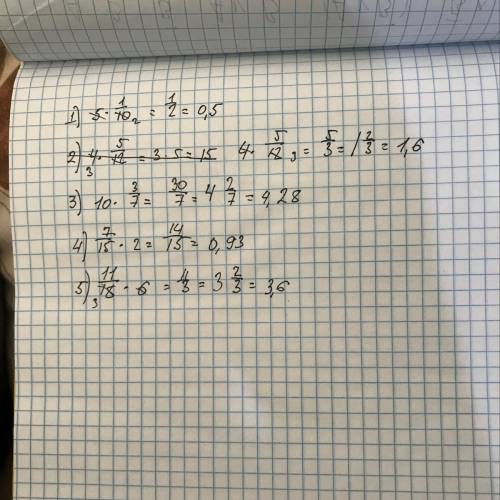 1) 5 · 1/10 2 = 1/2 = 0,5
2) 4 · 5/12 = 3 · 5 = 15 4 · 5/12 3 = 5/3 = 1 2/3 = 1,6
3) 10 · 3/7 = 30/7 = 4 2/7 = 4,28
4) 7/15 · 2 = 14/15 = 0,93
5) 3 11/18 · 6 = = 3 2/3 = 3,6